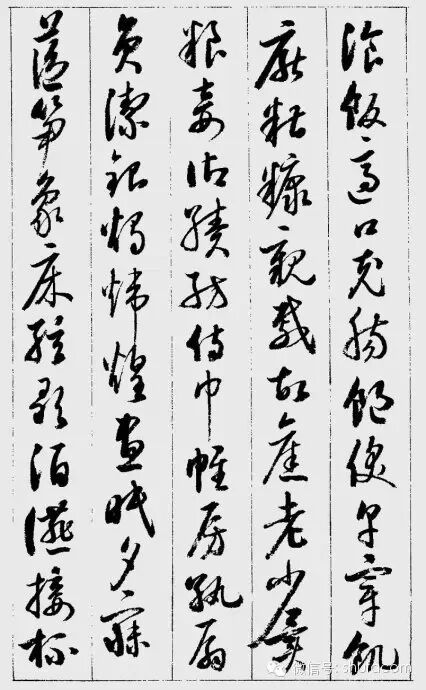 湌飯適口充腸飽飫烹宰飢
厭糟糠親戚故舊老少異
糧妾御績紡侍巾帷房紈扇
員潔銀燭煒煌晝眠夕寐
藍筍象床絃歌酒讌接杯
微信号: